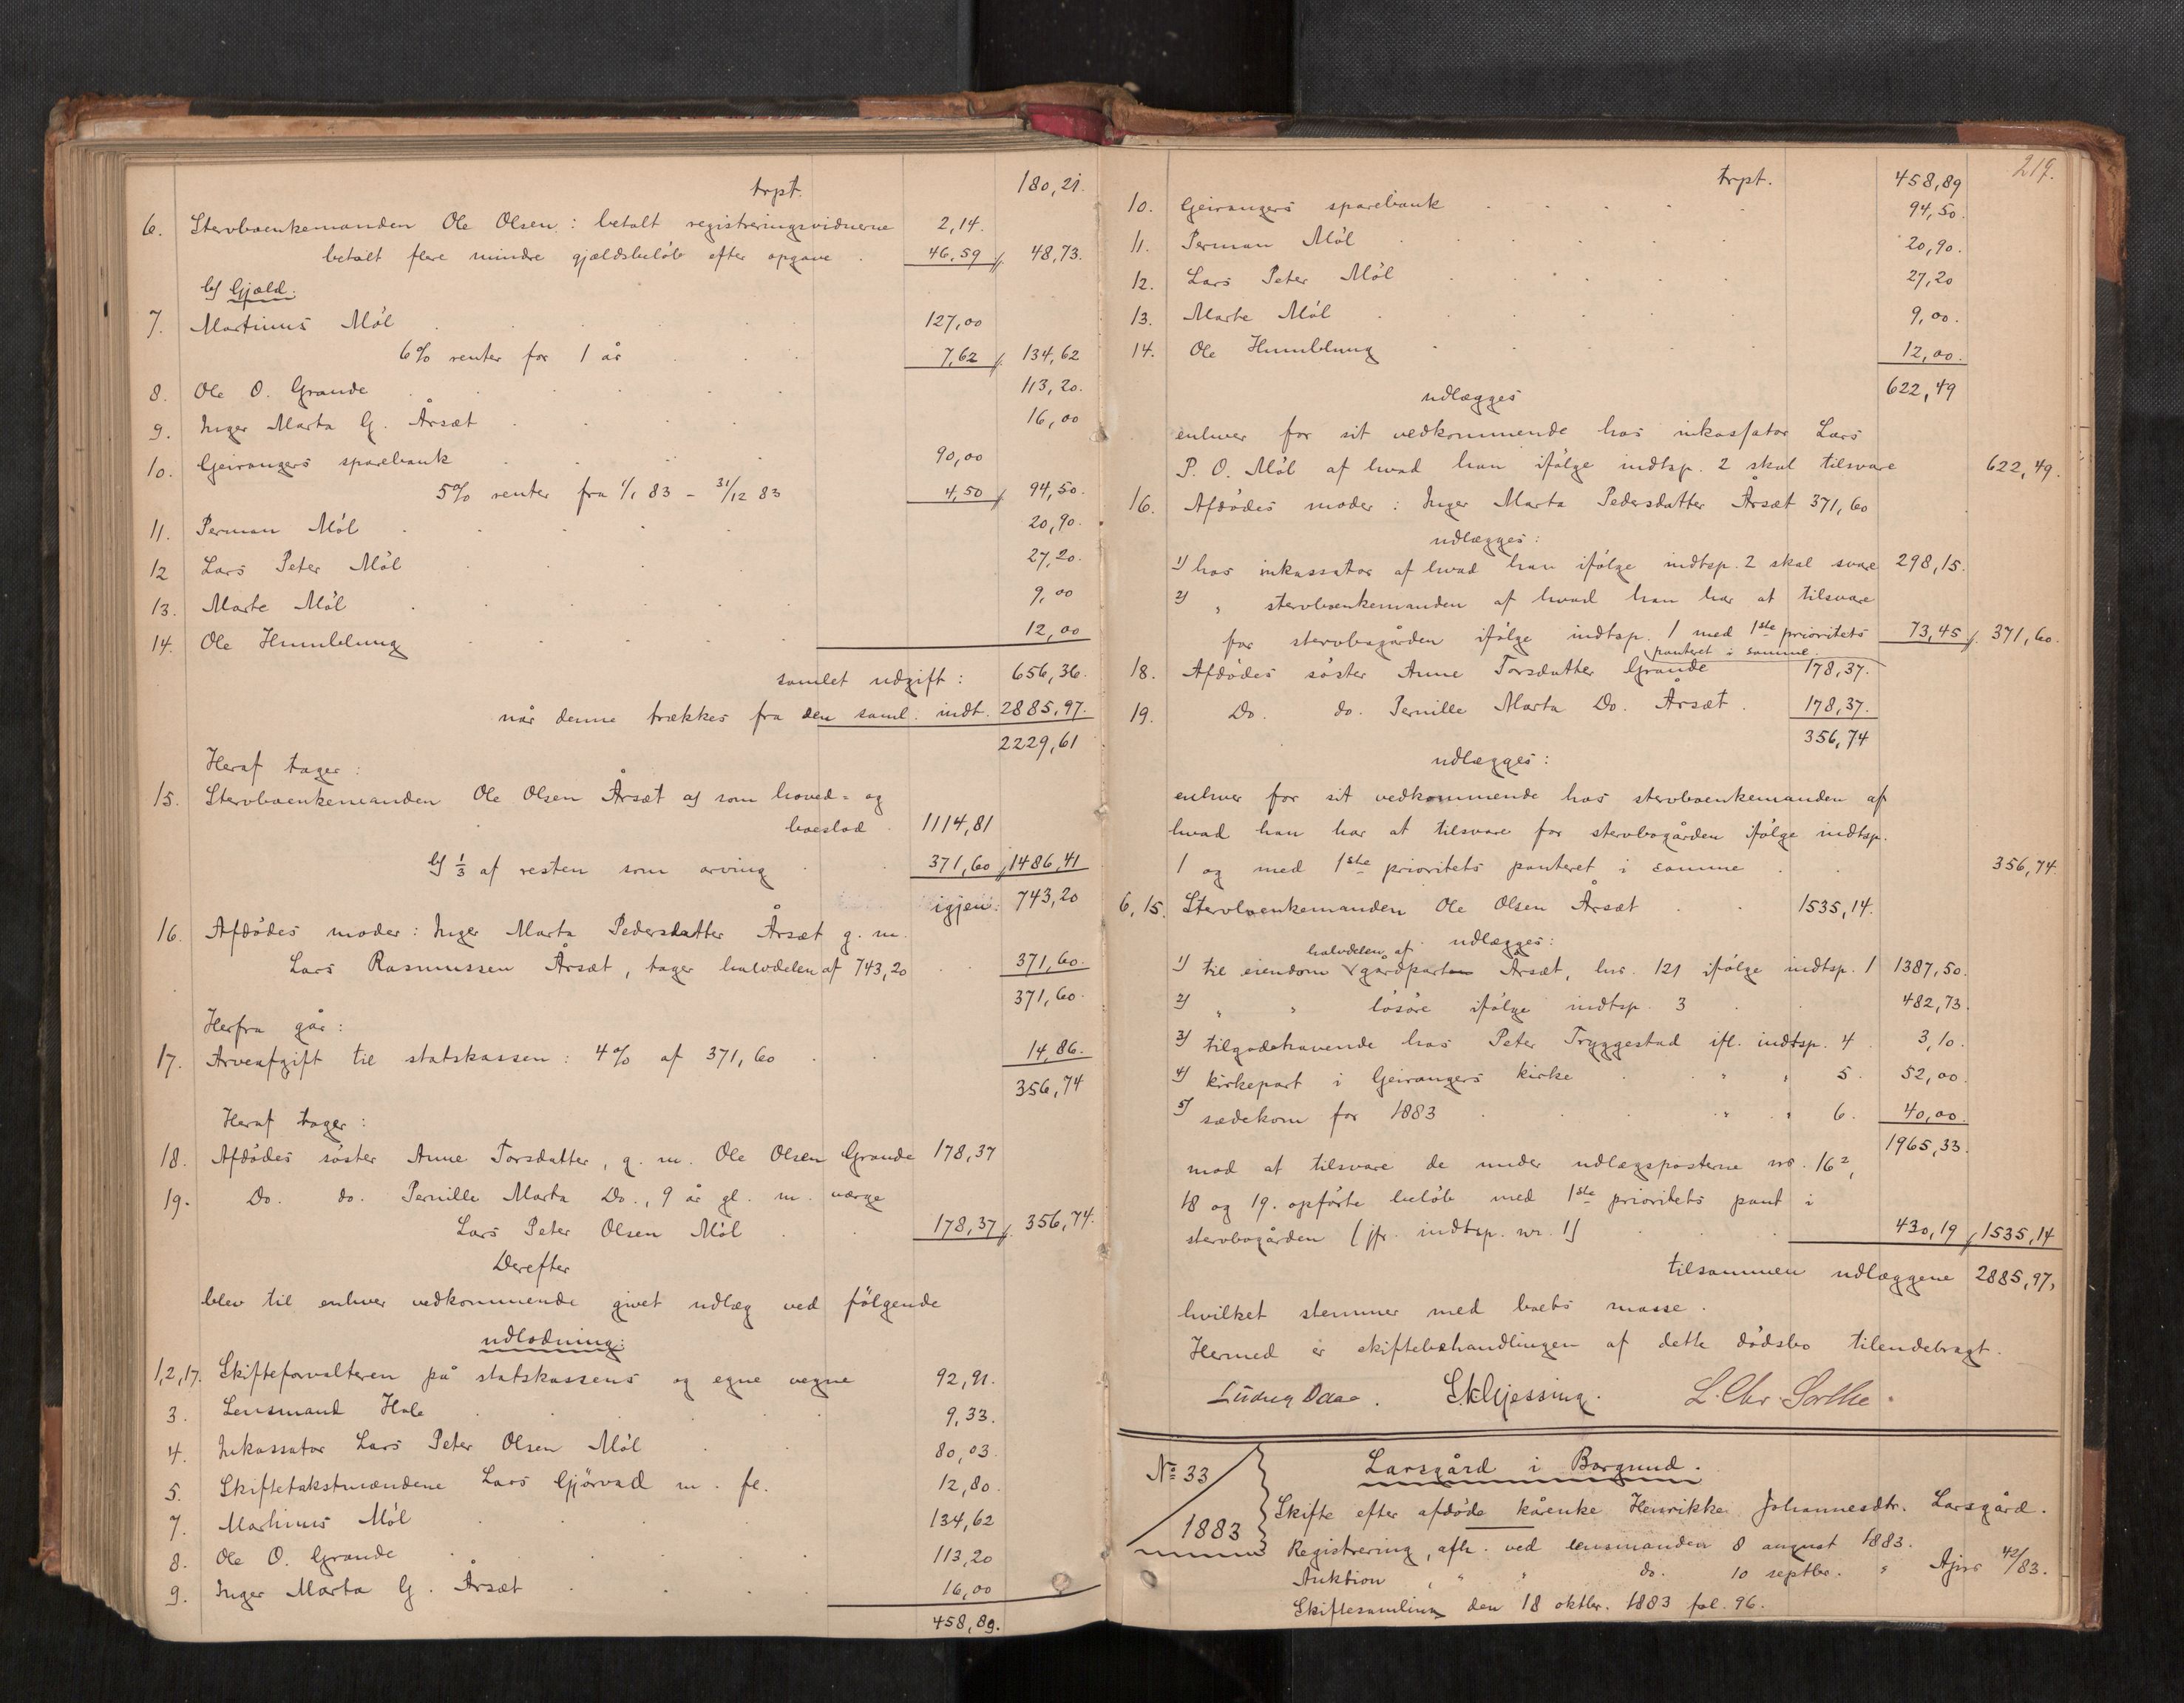 trpt. 180,21.
6. Stervboenkemanden Ole Olsen: betalt registreringsvidnerne 2,14.
betalt flere mindre gjældsbeløb efter opgave 46,59 /. 48,73.
b) Gjæld:
7. Martinus Møl 127,00
6% renter for 1 år 7,62 /. 134,62
8. Ole O. Grande 113,20.
9. Inger Marta G. Årsæt 16,00
10. Geirangers sparebank 90,00
5% renter fra 1/1 83 – 31/12 83 4,50 /. 94,50.
11. Perman Møl 20,90.
12 Lars Peter Møl 27,20.
13. Marte Møl 9,00
14. Ole Humblung 12,00
samlet udgift: 656,36.
når denne trækkes fra den saml. indt. 2885,97.
2229,61
Heraf tager:
15. Stervboenkemanden Ole Olsen Årsæt a) som hoved- og
boeslod 1114,81
b) 1/3 af resten som arving 371,60 /. 1486,41
igjen: 743,20
16. Afdødes moder: Inger Marta Pedersdatter Årsæt g. m.
Lars Rasmussen Årsæt, tager halvdelen af 743,20 371,60.
371,60.
Herfra går:
17. Arveafgift til statskassen: 4% af 371,60 14,86.
356,74
Heraf tager:
18. Afdødes søster Anne Torsdatter, g. m. Ole Olsen Grande 178,37
19. Do. do. Pernille Marta Do., 9 år gl. m. værge
Lars Peter Olsen Møl 178,37 /. 356,74.
Derefter
blev til enhver vedkommende givet udlæg ved følgende
udlodning:
1,2,17. Skifteforvalteren på statskassens og egne vegne 92,91.
3. Lensmand Hole 9,33.
4. Inkassator Lars Peter Olsen Møl 80,03.
5. Skiftetakstmændene Lars Gjørvad m. fl. 12,80.
7. Martinus Møl 134,62
8. Ole O. Grande 113,20
9. Inger Marta G. Årsæt 16,00
458,89.
219.
trpt. 458,89
10. Geirangers sparebank 94,50.
11. Perman Møl 20,90.
12. Lars Peter Møl 27,20
13. Marte Møl 9,00.
14. Ole Humblung 12,00.
622,49
udlægges
enhver for sit vedkommende hos inkassator Lars
P. O. Møl af hvad han ifølge indtsp. 2 skal tilsvare 622,49.
16. Afdødes moder: Inger Marta Pedersdatter Årsæt 371,60
udlægges:
1) hos inkassator af hvad han ifølge indtsp. 2 skal svare 298,15.
2) " stervboenkemanden af hvad han har at tilsvare
for stervbogården ifølge indtsp. 1 med 1ste prioritets 73,45 /. 371,60.
panteret i samme.
18. Afdødes søster Anne Torsdatter Grande 178,37.
19. Do. do. Pernille Marta Do. Årsæt 178,37.
356,74
udlægges:
enhver for sit vedkommende hos stervboenkemanden af
hvad han har at tilsvare for stervbogården ifølge indtsp.
1 og med 1ste prioritets panteret i samme 356,74.
6, 15. Stervboenkemanden Ole Olsen Årsæt 1535,14.
udlægges:
halvdelen af
1) til eiendom gårdparten Årsæt, lnr. 121 ifølge indtsp. 1 1387,50.
2) " " løsøre ifølge indtsp. 3 482,73.
3) tilgodehavende hos Peter Tryggestad ifl. indtsp. 4 3,10.
4) kirkepart i Geirangers kirke " " 5. 52,00.
5) sædekorn for 1883 " " 6. 40,00.
1965,33.
mod at tilsvare de under udlægsposterne nr. 16²,
18 og 19. opførte beløb med 1ste prioritets pant i
stervbogården (jfr. indtsp. nr. 1) 430,19 /. 1535,14
tilsammen udlæggene 2885,97,
hvilket stemmer med boets masse.
Hermed er skiftebehandlingen af dette dødsbo tilendebragt.
Ludvig Daae. L. Chr. Sorthe.
No 33
1883
Larsgård i Borgund.
Skifte efter afdøde kårenke Henrikke Johannesdtr. Larsgård.
Registrering, afh. ved lensmanden 8 august 1883.
Auktion, " " do. 10 septbr. " Ajnr 42/83.
Skiftesamling den 18 oktbr. 1883 fol. 96.